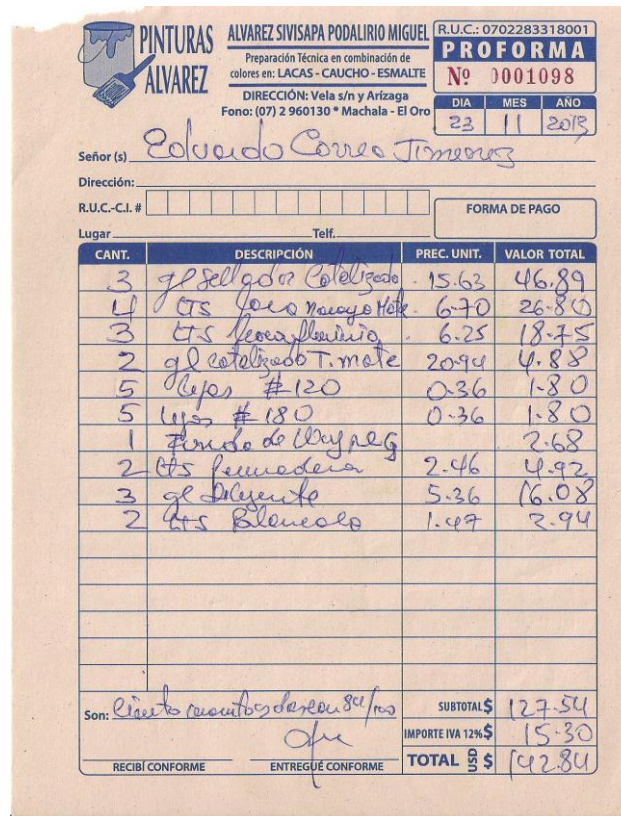 PINTURAS
ALVAREZ
ALVAREZ SIVISAPA PODALIRIO MIGUEL
Preparación Técnica en combinación de
colores en: LACAS - CAUCHO - ESMALTE
DIRECCIÓN: Vela s/n y Arízaga
Fono: (07) 2 960130 * Machala - El Oro
R.U.C.: 0702283318001
PROFORMA
Nº 0001098
DIA MES AÑO
23 11 2013
Señor (s) Eduardo Correa Jimenez
Dirección:
R.U.C.-C.I. #
FORMA DE PAGO
Lugar Telf.
CANT. DESCRIPCIÓN PREC. UNIT. VALOR TOTAL
3 gl Sellador Catalizado 15.63 46.89
4 LTS Laca Mate 6.70 26.80
3 LTS 6.25 18.75
2 gl catalizado T. mate 20.94 4.88
5 Lijas #120 0.36 1.80
5 Lijas #180 0.36 1.80
1 Funda de 2.68
2 LTS 2.46 4.92
3 gl Diluyente 5.36 16.08
2 LTS Blancola 1.47 2.94
Son: Ciento cuarenta y dos con 84/100
SUBTOTAL $ 127.54
IMPORTE IVA 12% $ 15.30
TOTAL USD $ 142.84
RECIBÍ CONFORME ENTREGUÉ CONFORME